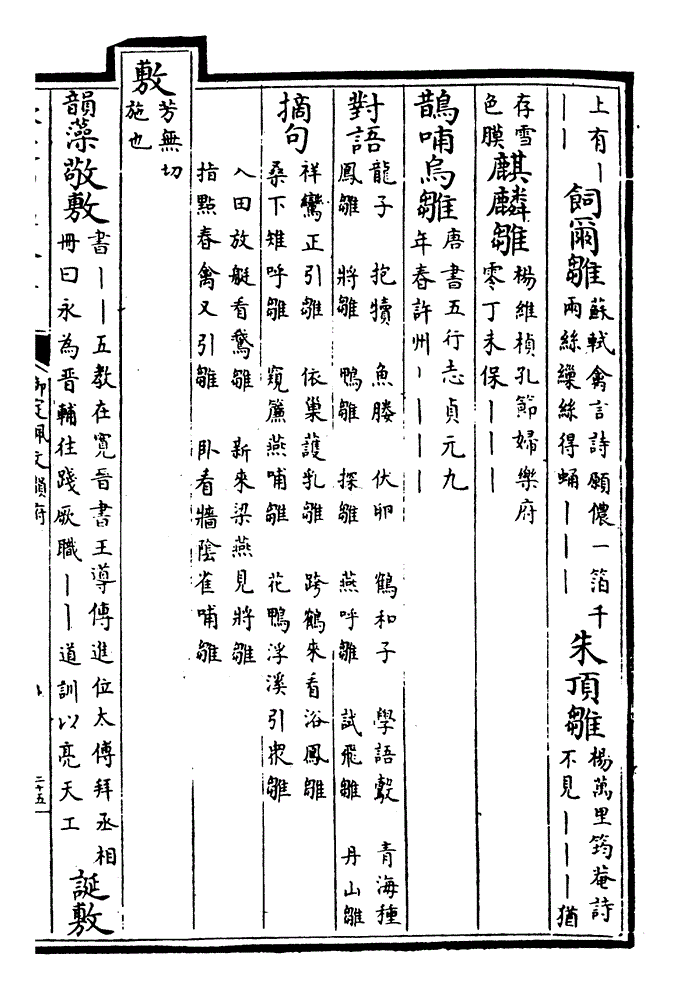 上有丨
丨丨
飼爾雛
蘇軾禽言詩願儂一箔千
兩絲繰絲得蛹丨丨丨
朱頂雛
楊萬里筠菴詩
不見丨丨丨猶
存雪
色膜
麒麟雛
楊維楨孔節婦樂府
零丁未保丨丨丨
鵲哺烏雛
唐書五行志貞元九
年春許州丨丨丨丨
對語
龍子 抱犢 魚媵 伏卵 鶴和子 學語鷇 青海種
鳳雛 將雛 鴨雛 探雛 燕呼雛 試飛雛 丹山雛
摘句
祥鸞正引雛 依巢護乳雛 跨鶴來看浴鳳雛
桑下雉呼雛 窺簾燕哺雛 花鴨浮溪引衆雛
入田放艇看鵞雛 新來梁燕見將雛
指點春禽又引雛 卧看牆陰雀哺雛
敷
芳無切
施也
韻藻
敬敷
書丨丨五教在寛晉書王導傳進位太傅拜丞相
冊曰永為晉輔往踐厥職丨丨道訓以亮天工
誕敷
御定佩文韻府
二十五